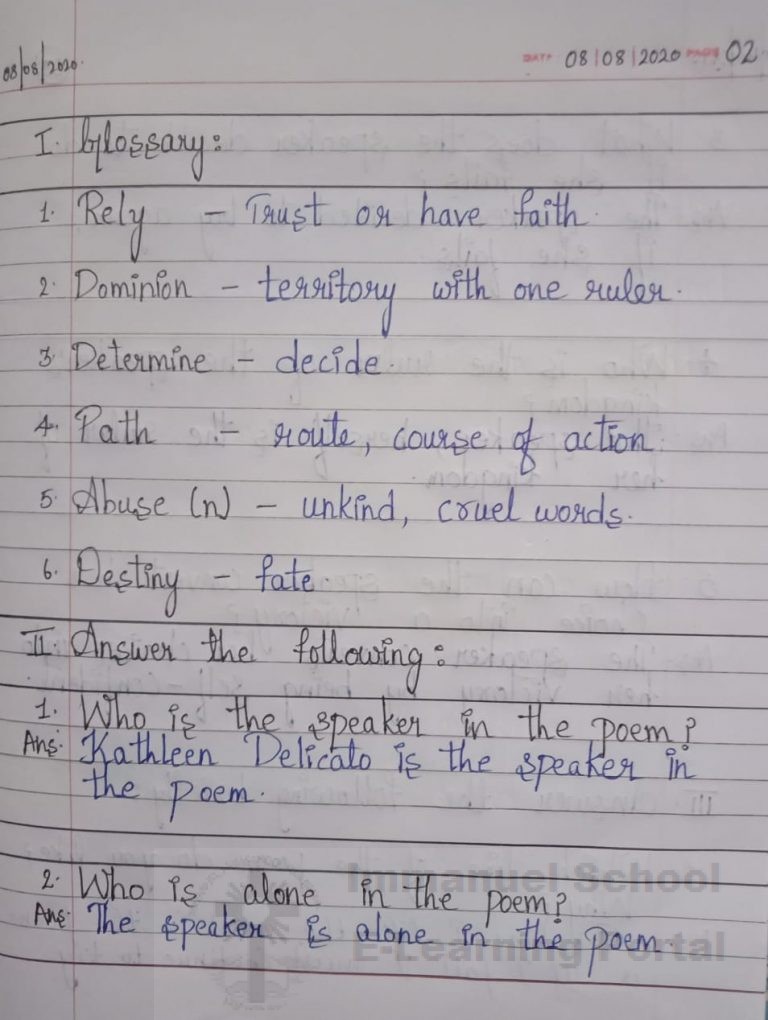 08/08/2020
DATE 08/08/2020 PAGE 02
I. Glossary:
1. Rely - Trust or have faith.
2. Dominion - territory with one ruler.
3. Determine - decide.
4. Path - route, course of action.
5. Abuse (n) - unkind, cruel words.
6. Destiny - fate.
II. Answer the following:
1. Who is the speaker in the poem?
Ans. Kathleen Delicato is the speaker in
the poem.
2. Who is alone in the poem?
Ans. The speaker is alone in the poem.
Immanuel School
E-Learning Portal